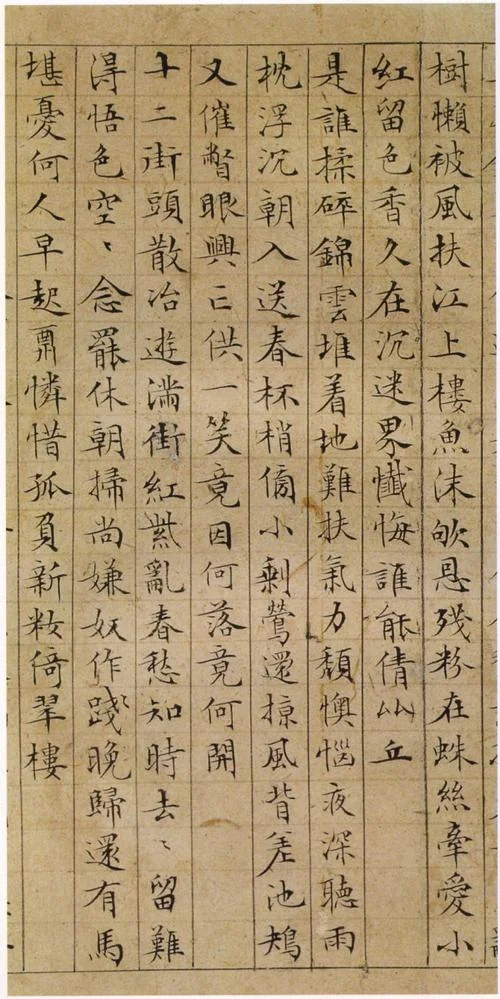 樹懶被風扶江上樓魚沫吹恩殘粉在蛛絲牽愛小
紅留色香久在沉迷界懺悔誰能倩比丘
是誰揉碎錦雲堆着地難扶氣力頹懊惱夜深聽雨
枕浮沉朝入送春杯梢傷小剩鶯還掠風背差池鳩
又催瞥眼興亡供一笑竟因何落竟何開
十二街頭散冶遊滿街紅紫亂春愁知時去〻留難
得悟色空〻念罷休朝掃尚嫌奴作踐晚歸還有馬
堪憂何人早起鬅憐惜孤負新妝倚翠樓